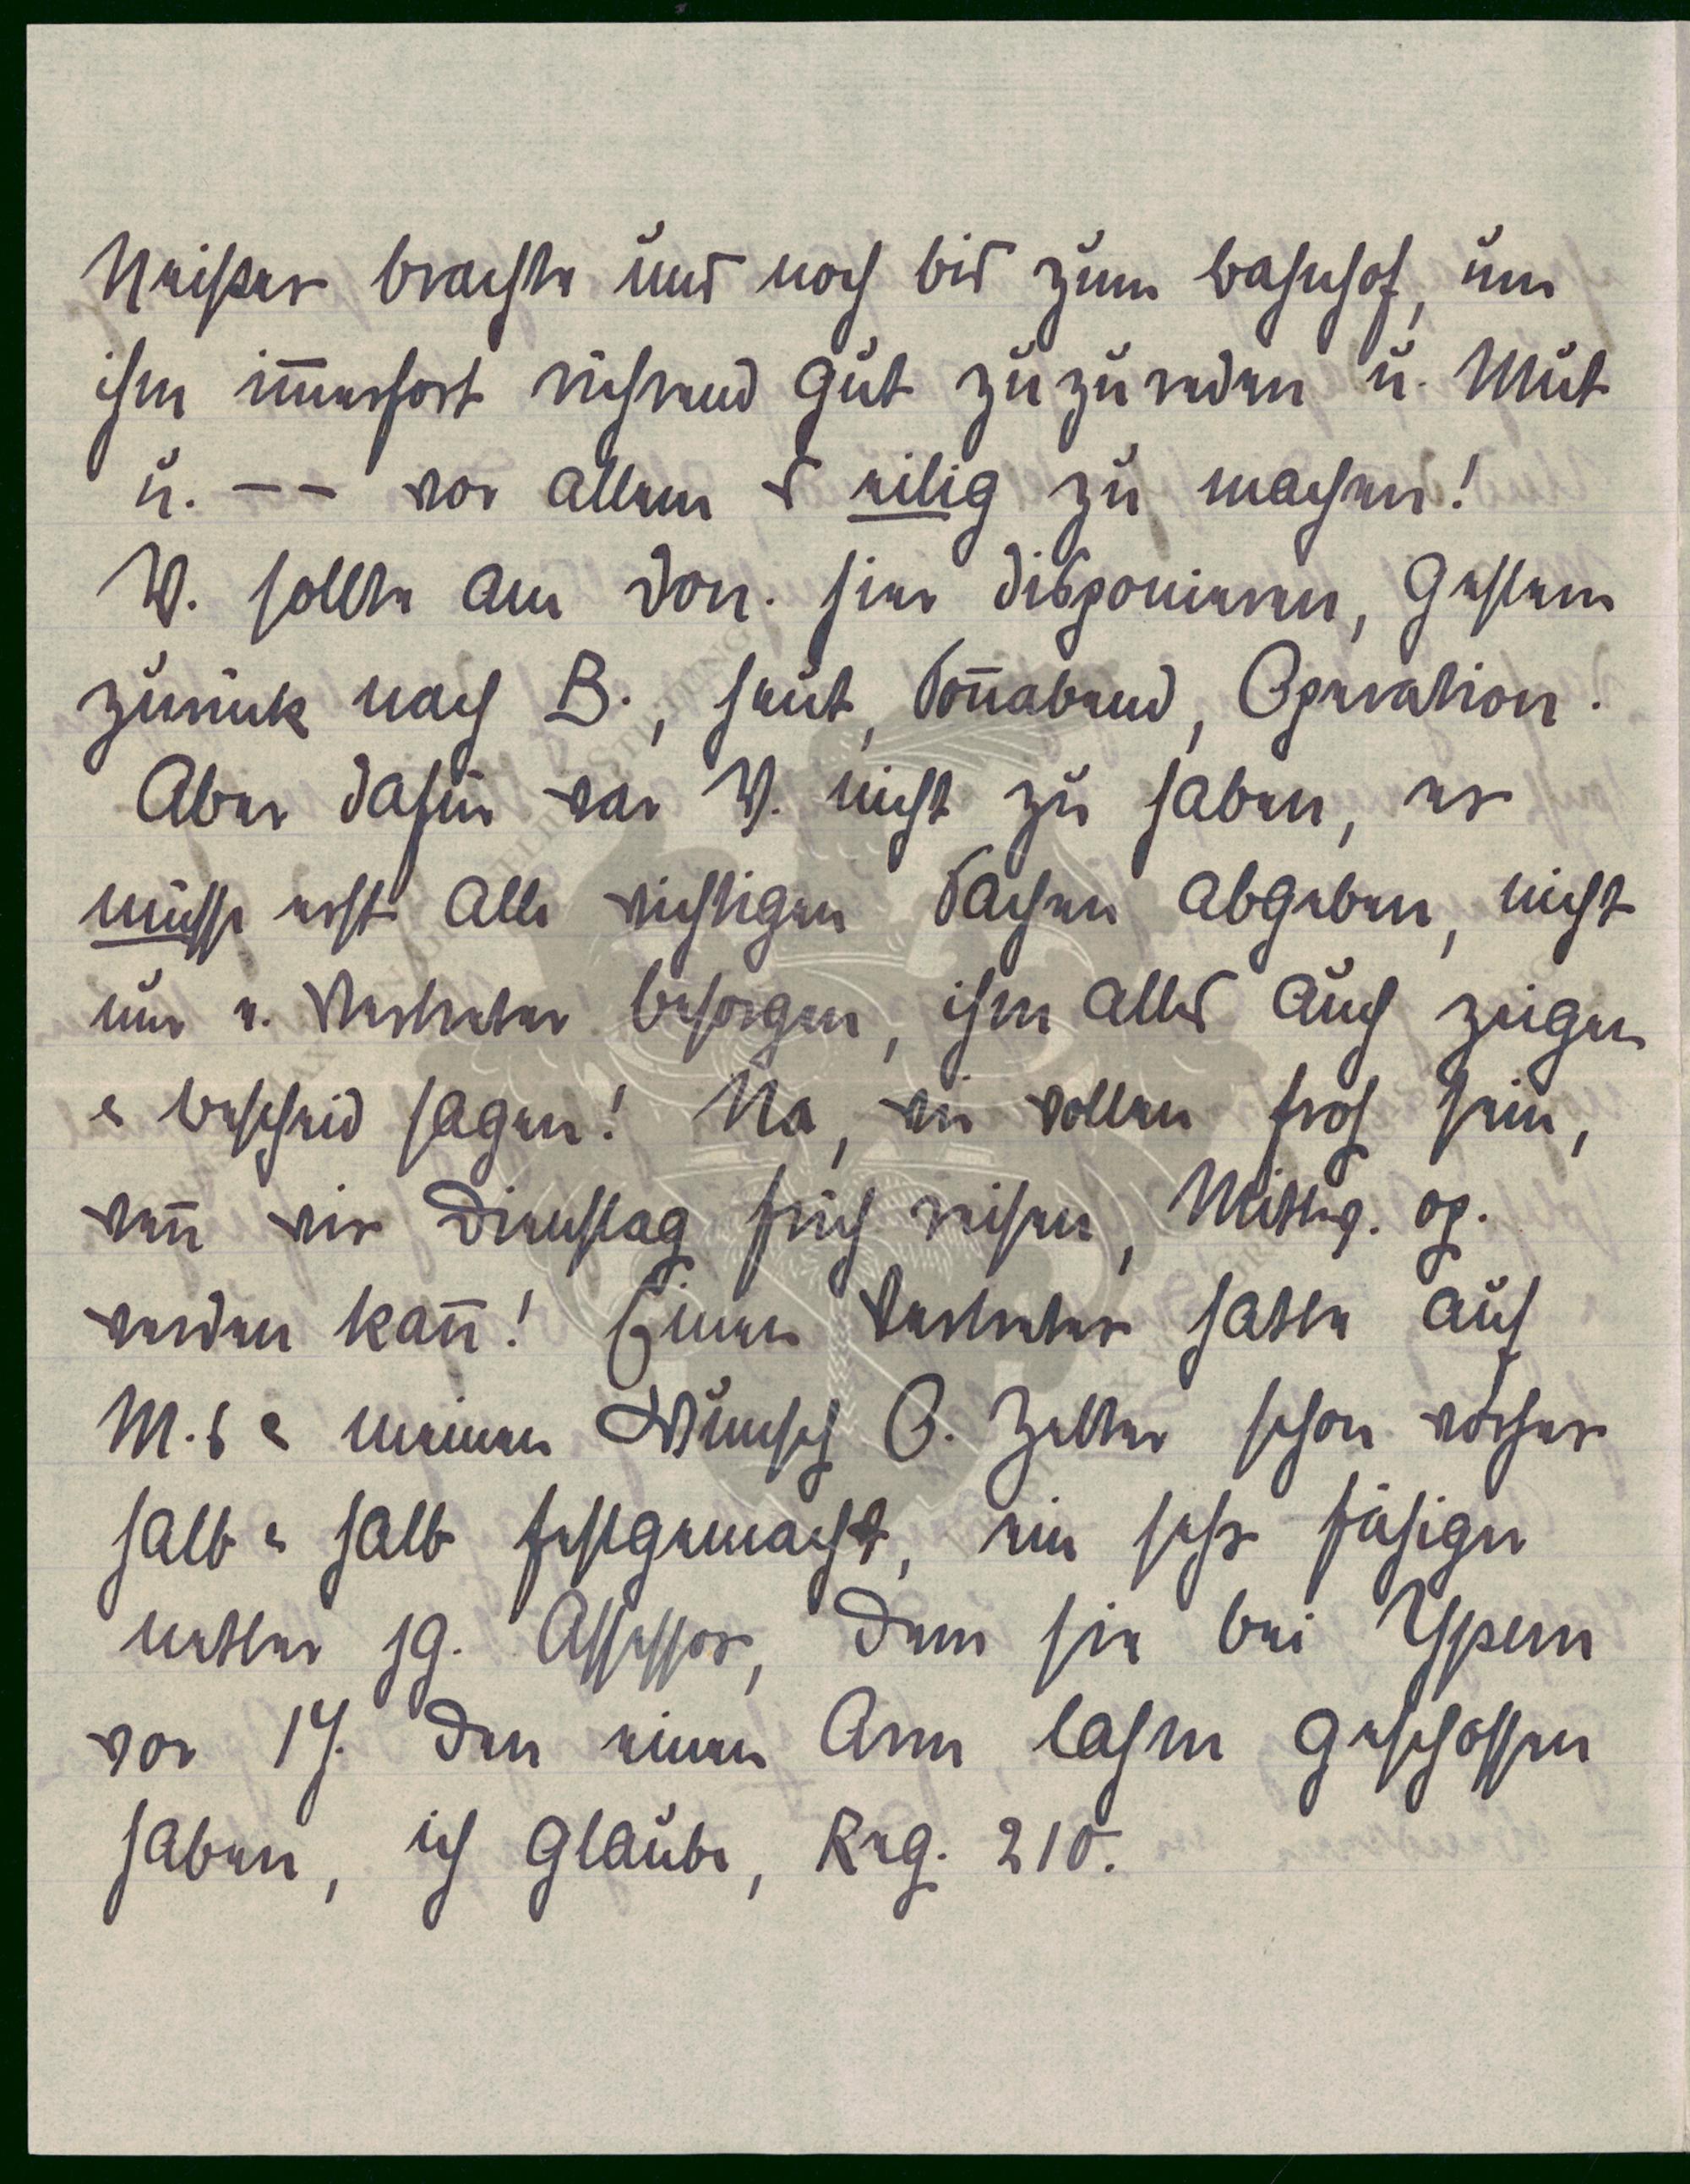 Neisser brachte uns noch bis zum Bahnhof, um
ihm im̅erfort rührend gut zuzureden u. Mut
u. -- vor allem es eilig zu machen!
W. sollte am Don. hier disponieren, gestern
zurück nach B., heut, Son̅abend, Operation.
Aber dafür war W. nicht zu haben, er
müsse erst alle wichtigen Sachen abgeben, nicht
nur e. Vertreter besorgen, ihm alles auch zeigen
& Bescheid sagen! Na, wir wollen froh sein,
wen̅ wir Dienstag früh reisen, Mittw. op.
werden kan̅! Einen Vertreter hatte auf
M.s & meinen Wunsch O. Zeller schon vorher
halb & halb festgemacht, ein sehr fähiger
netter jg. Assessor, dem sie bei Ypern
vor 17 J. den einen Arm lahm geschossen
haben, ich glaube, Reg. 210.
MAX WEBER STIFTUNG